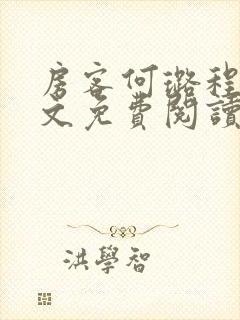 房客何璐程
文免費閱讀
洪學智